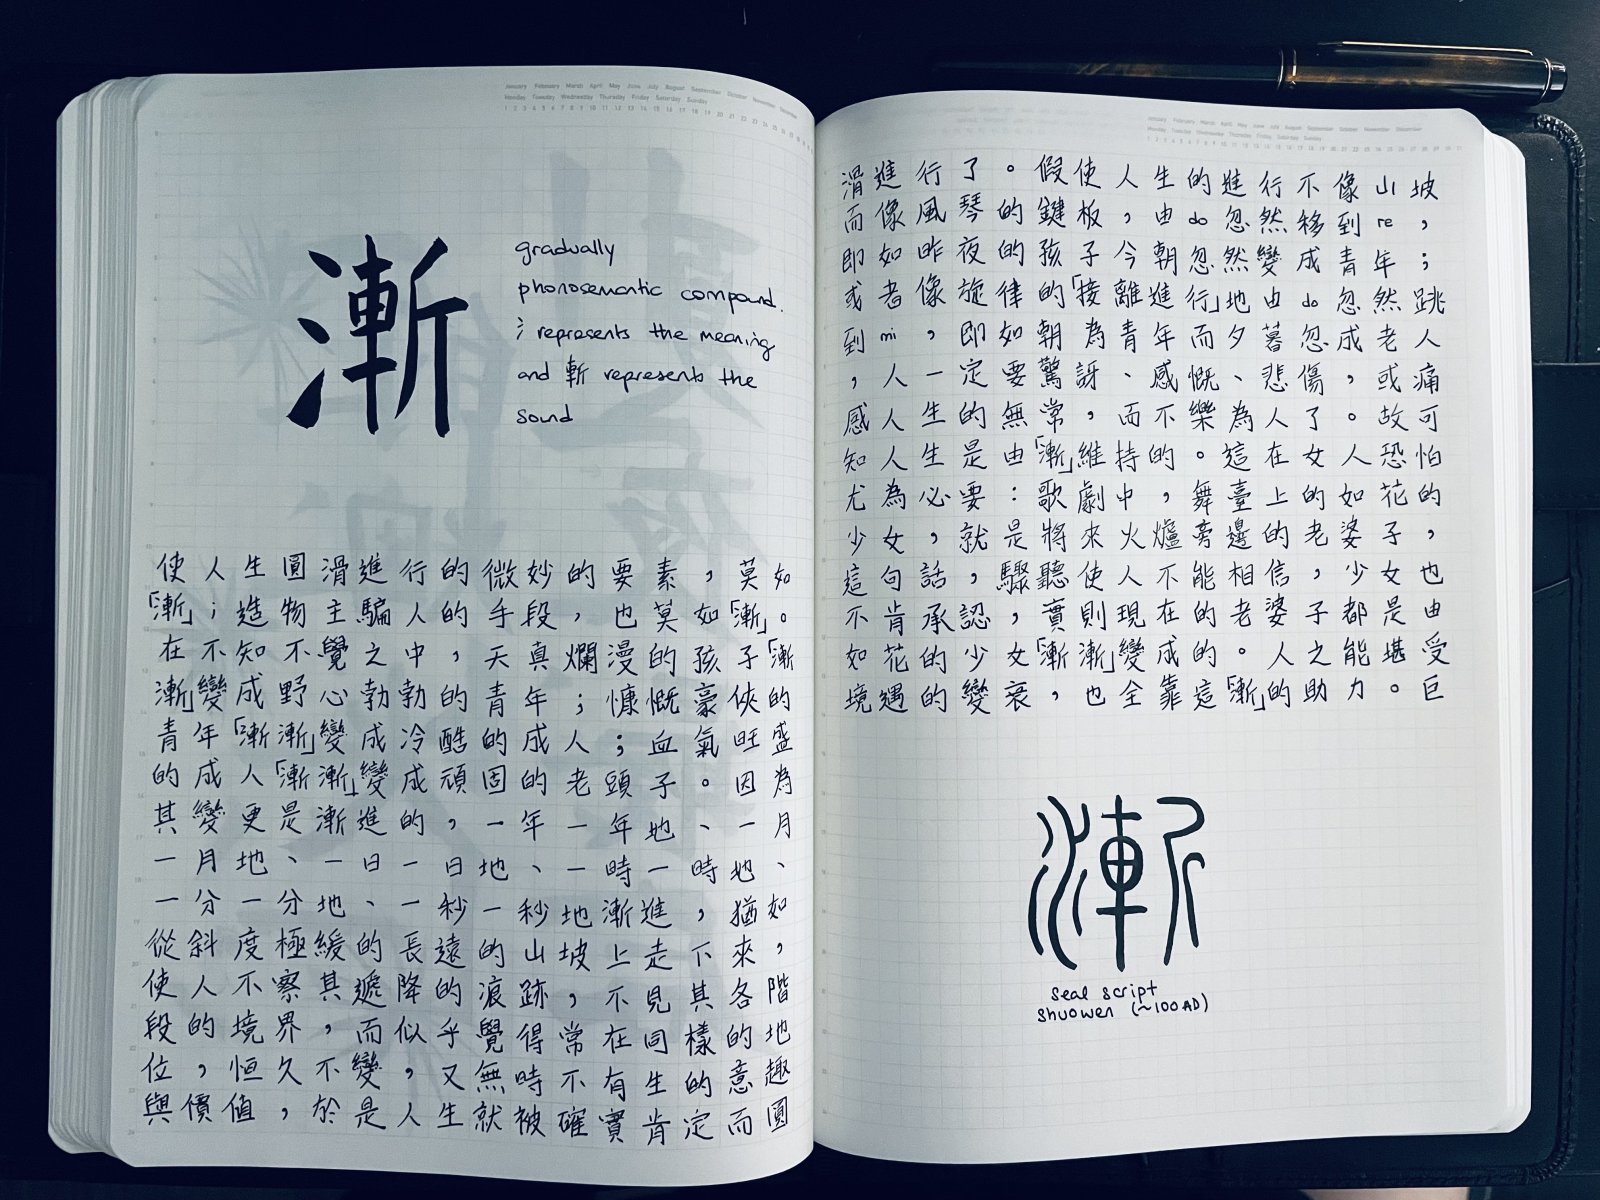 January February March April May June July August September October November December
Monday Tuesday Wednesday Thursday Friday Saturday Sunday
漸
gradually
phonosemantic compound.
氵represents the meaning
and 斬 represents the
sound
使人生圓滑進行的微妙的要素，莫如
「漸」；造物主騙人的手段，也莫如「漸」。
在不知不覺之中，天真爛漫的孩子「漸
漸」變成野心勃勃的青年；慷慨豪俠的
青年「漸漸」變成冷酷的成人；血氣旺盛
的成人「漸漸」變成頑固的老頭子。因為
其變更是漸進的，一年一年地、一月
一月地、一日一日地、一時一時地、
一分一分地、一秒一秒地漸進，猶如
從斜度極緩的長遠的山坡上走下來，
使人不察其遞降的痕跡，不見其各階
段的境界，而似乎覺得常在同樣的地
位，恒久不變，又無時不有生的意趣
與價值，於是人生就被確實肯定而圓
January February March April May June July August September October November December
Monday Tuesday Wednesday Thursday Friday Saturday Sunday
滑進行了。假使人生的進行不像山坡
而像風琴的鍵板，由do忽然移到re，
即如昨夜的孩子今朝忽然變成青年；
或者像旋律的「接離進行」地由do忽然跳
到mi，即如朝為青年而夕暮忽成老人
，人一定要驚訝、感慨、悲傷，或痛
感人生的無常，而不樂為人了。故可
知人生是由「漸」維持的。這在女人恐怕
尤為必要：歌劇中，舞臺上的如花的
少女，就是將來火爐旁邊的老婆子，
這句話，驟聽使人不能相信，少女也
不肯承認，實則現在的老婆子都是由
如花的少女「漸漸」變成的。人之能堪受
境遇的變衰，也全靠這「漸」的助力。巨
漸
seal script
shuowen (~100 AD)